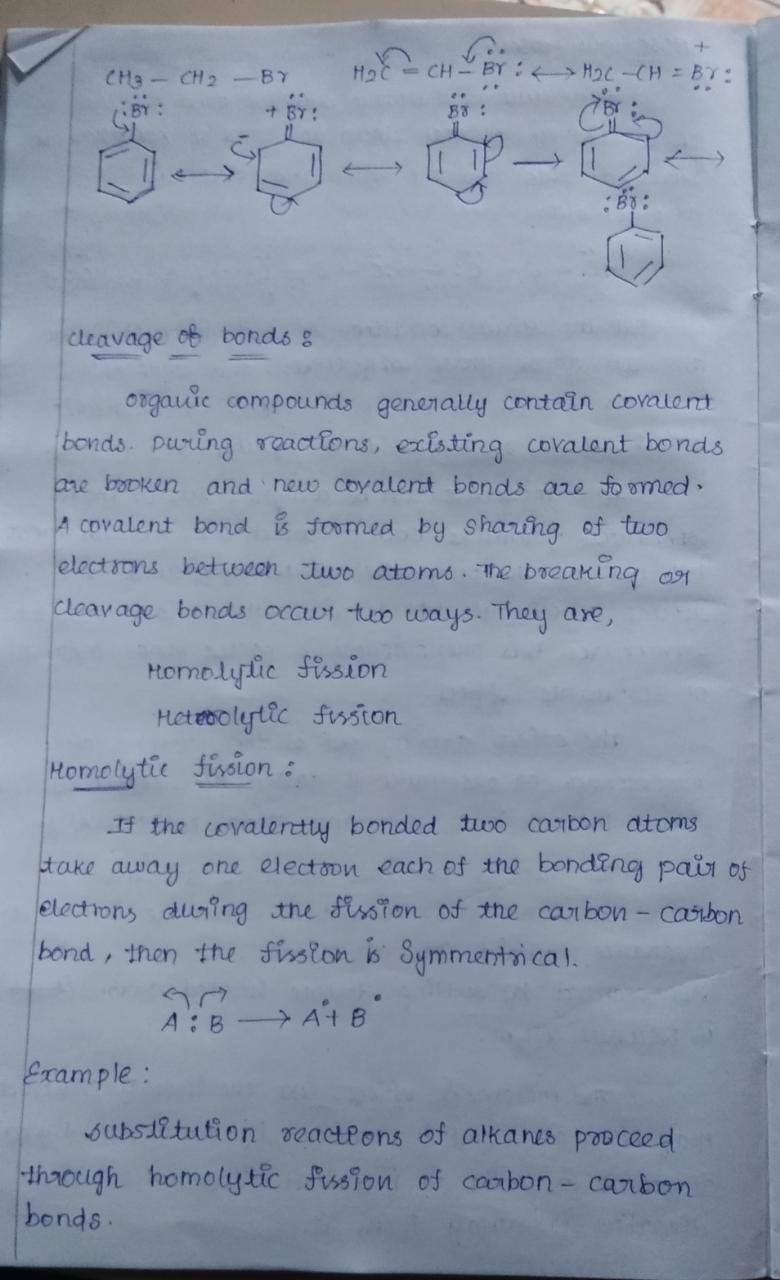 CH3 – CH2 – Br    H2C = CH – Br : ⟷ H2C – CH = Br :
+
: Br :    + Br :    Br :    Br :
⟷    ⟷    ⟶    ⟷
: Br :
cleavage of bonds :
organic compounds generally contain covalent
bonds. During reactions, existing covalent bonds
are broken and new covalent bonds are formed.
A covalent bond is formed by sharing of two
electrons between two atoms. The breaking or
cleavage bonds occur two ways. They are,
Homolytic fission
Heterolytic fission
Homolytic fission :
If the covalently bonded two carbon atoms
take away one electron each of the bonding pair of
electrons during the fission of the carbon – carbon
bond, then the fission is Symmentrical.
A : B ⟶ A• + B•
Example :
substitution reactions of alkanes proceed
through homolytic fission of carbon – carbon
bonds.